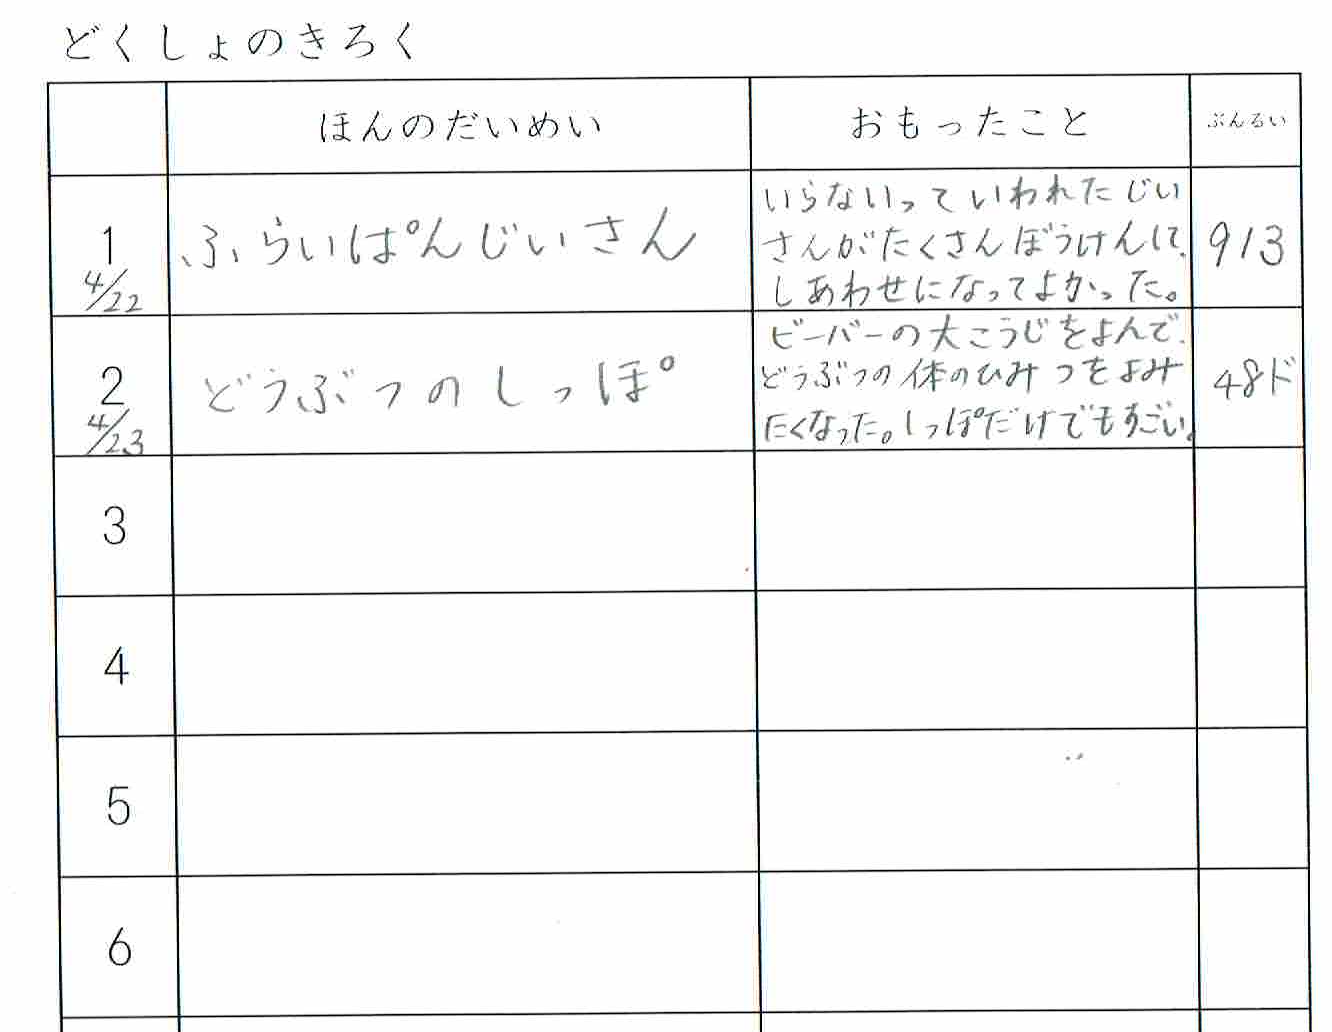 どくしょのきろく
ほんのだいめい
おもったこと
ぶんるい
1
4/22
ふらいぱんじいさん
いらないっていわれたじい
さんがたくさんぼうけんして、
しあわせになってよかった。
913
2
4/23
どうぶつのしっぽ
ビーバーの大こうじをよんで、
どうぶつの体のひみつをよみ
たくなった。しっぽだけでもすごい。
48ド
3
4
5
6